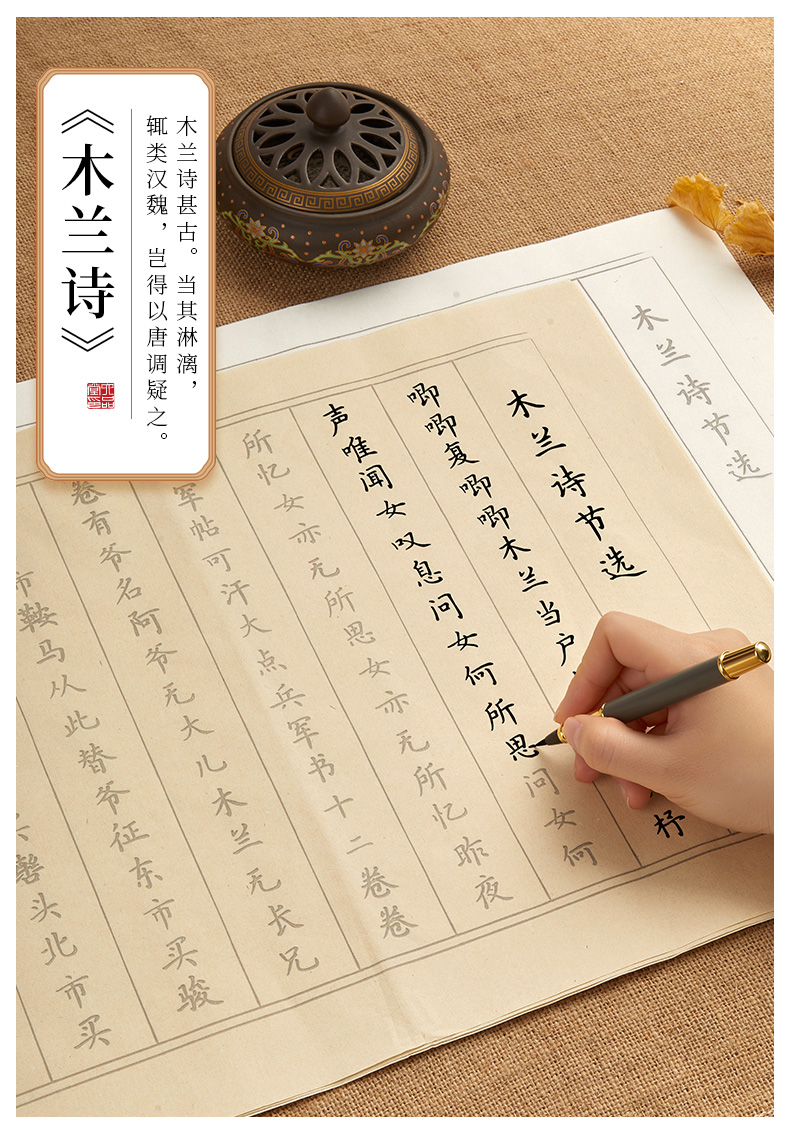 《木兰诗》
木兰诗甚古。当其淋漓，
辄类汉魏，岂得以唐调疑之。
木兰诗节选
木兰诗节选
唧唧复唧唧木兰当户
杼
声唯闻女叹息问女何所思问女何
所忆女亦无所思女亦无所忆昨夜
军帖可汗大点兵军书十二卷卷
卷有爷名阿爷无大儿木兰无长兄
市鞍马从此替爷征东市买骏
辔头北市买